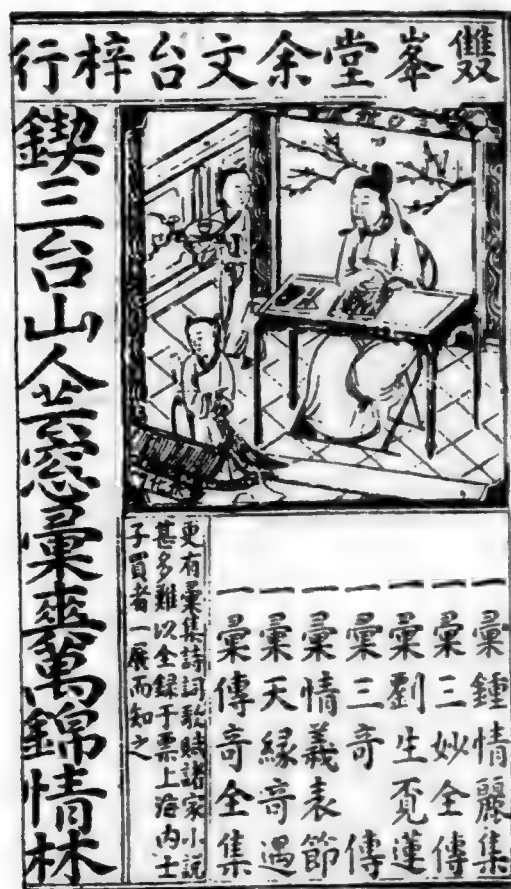 雙峯堂余文台梓行
一彚鍾情麗集
一彚三妙全傳
一彚劉生覓蓮
一彚三奇傳
一彚情義表節
一彚天緣奇遇
一彚傳奇全集
更有彚集詩詞歌賦諸家小說
甚多難以全録于票上海内士
子買者一展而知之
鍥三台山人芸窓彚爽萬錦情林